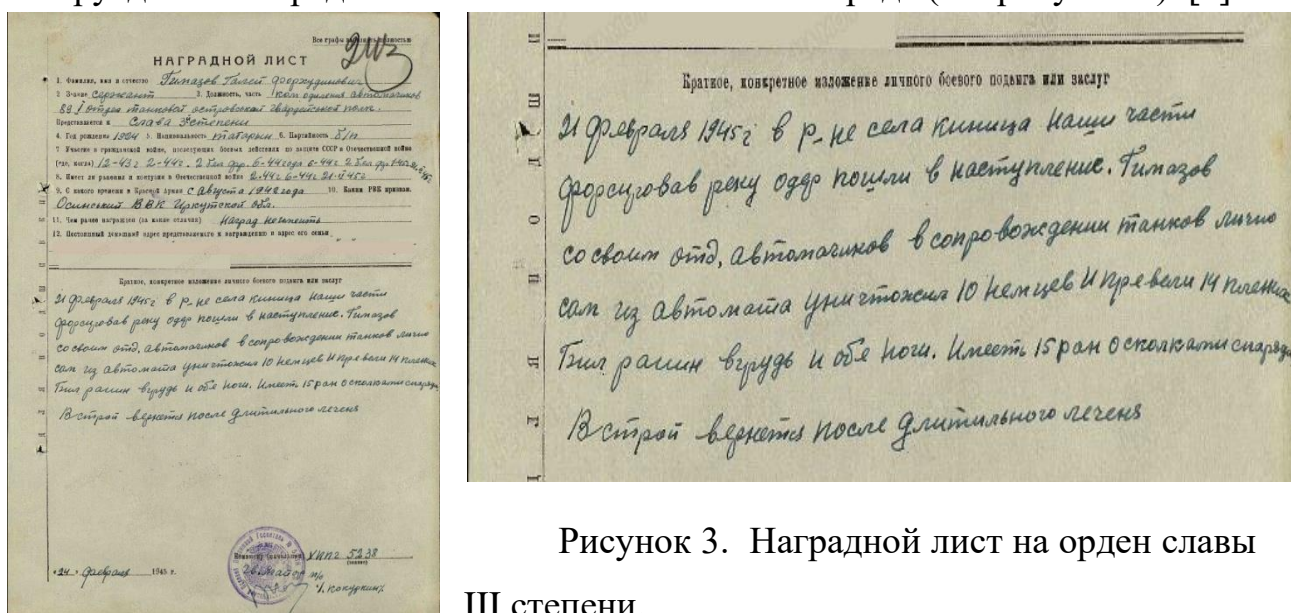 Все графы заполнять полностью
НАГРАДНОЙ ЛИСТ
1. Фамилия, имя и отчество Гимазов Галей
2 Звание сержант 3. Должность, часть Ком отделения автоматчиков
89 отдел танковой островской гвардейской полк.
Представляется к Слава 3 степени
4. Год рождения 1924 5. Национальность татарин 6. Партийность б/п
7 Участие в гражданской войне, последующих боевых действиях по защите СССР и Отечественной войне
(где, когда) 12-43г 2-44г. 2 бел фр. 6-44года 6-44г 2 бел фр
8. Имеет ли ранения и контузии в Отечественной войне 2-44г 6-44г 21-II 45г
9. С какого времени в Красной Армии с Августа 1942 года 10. Каким РВК призван.
Осинский РВК Иркутской обл.
11. Чем ранее награжден (за какие отличия) Наград не имеить
12. Постоянный домашний адрес представляемого к награждению и адрес его семьи
Краткое, конкретное изложение личного боевого подвига или заслуг
21 февраля 1945г в р-не села киница наши части
форсировав реку одер пошли в наступление. Гимазов
со своим отд, автоматчиков в сопровождении танков лично
сам из автомата уничтожил 10 немцев И превели 14 пленних
Бил рашин вгрудь и обе ноги. Имееть 15 ран осколками снаряда
В строй вернется после длитильного леченя
ХИПГ 5238
"24" февраля 1945 г.
Краткое, конкретное изложение личного боевого подвига или заслуг
21 февраля 1945г в р-не села киница наши части
форсировав реку одер пошли в наступление. Гимазов
со своим отд, автоматчиков в сопровождении танков лично
сам из автомата уничтожил 10 немцев И превели 14 пленних
Бил рашин вгрудь и обе ноги. Имееть 15 ран осколками снаряда
В строй вернется после длитильного леченя
Рисунок 3. Наградной лист на орден славы
III степени